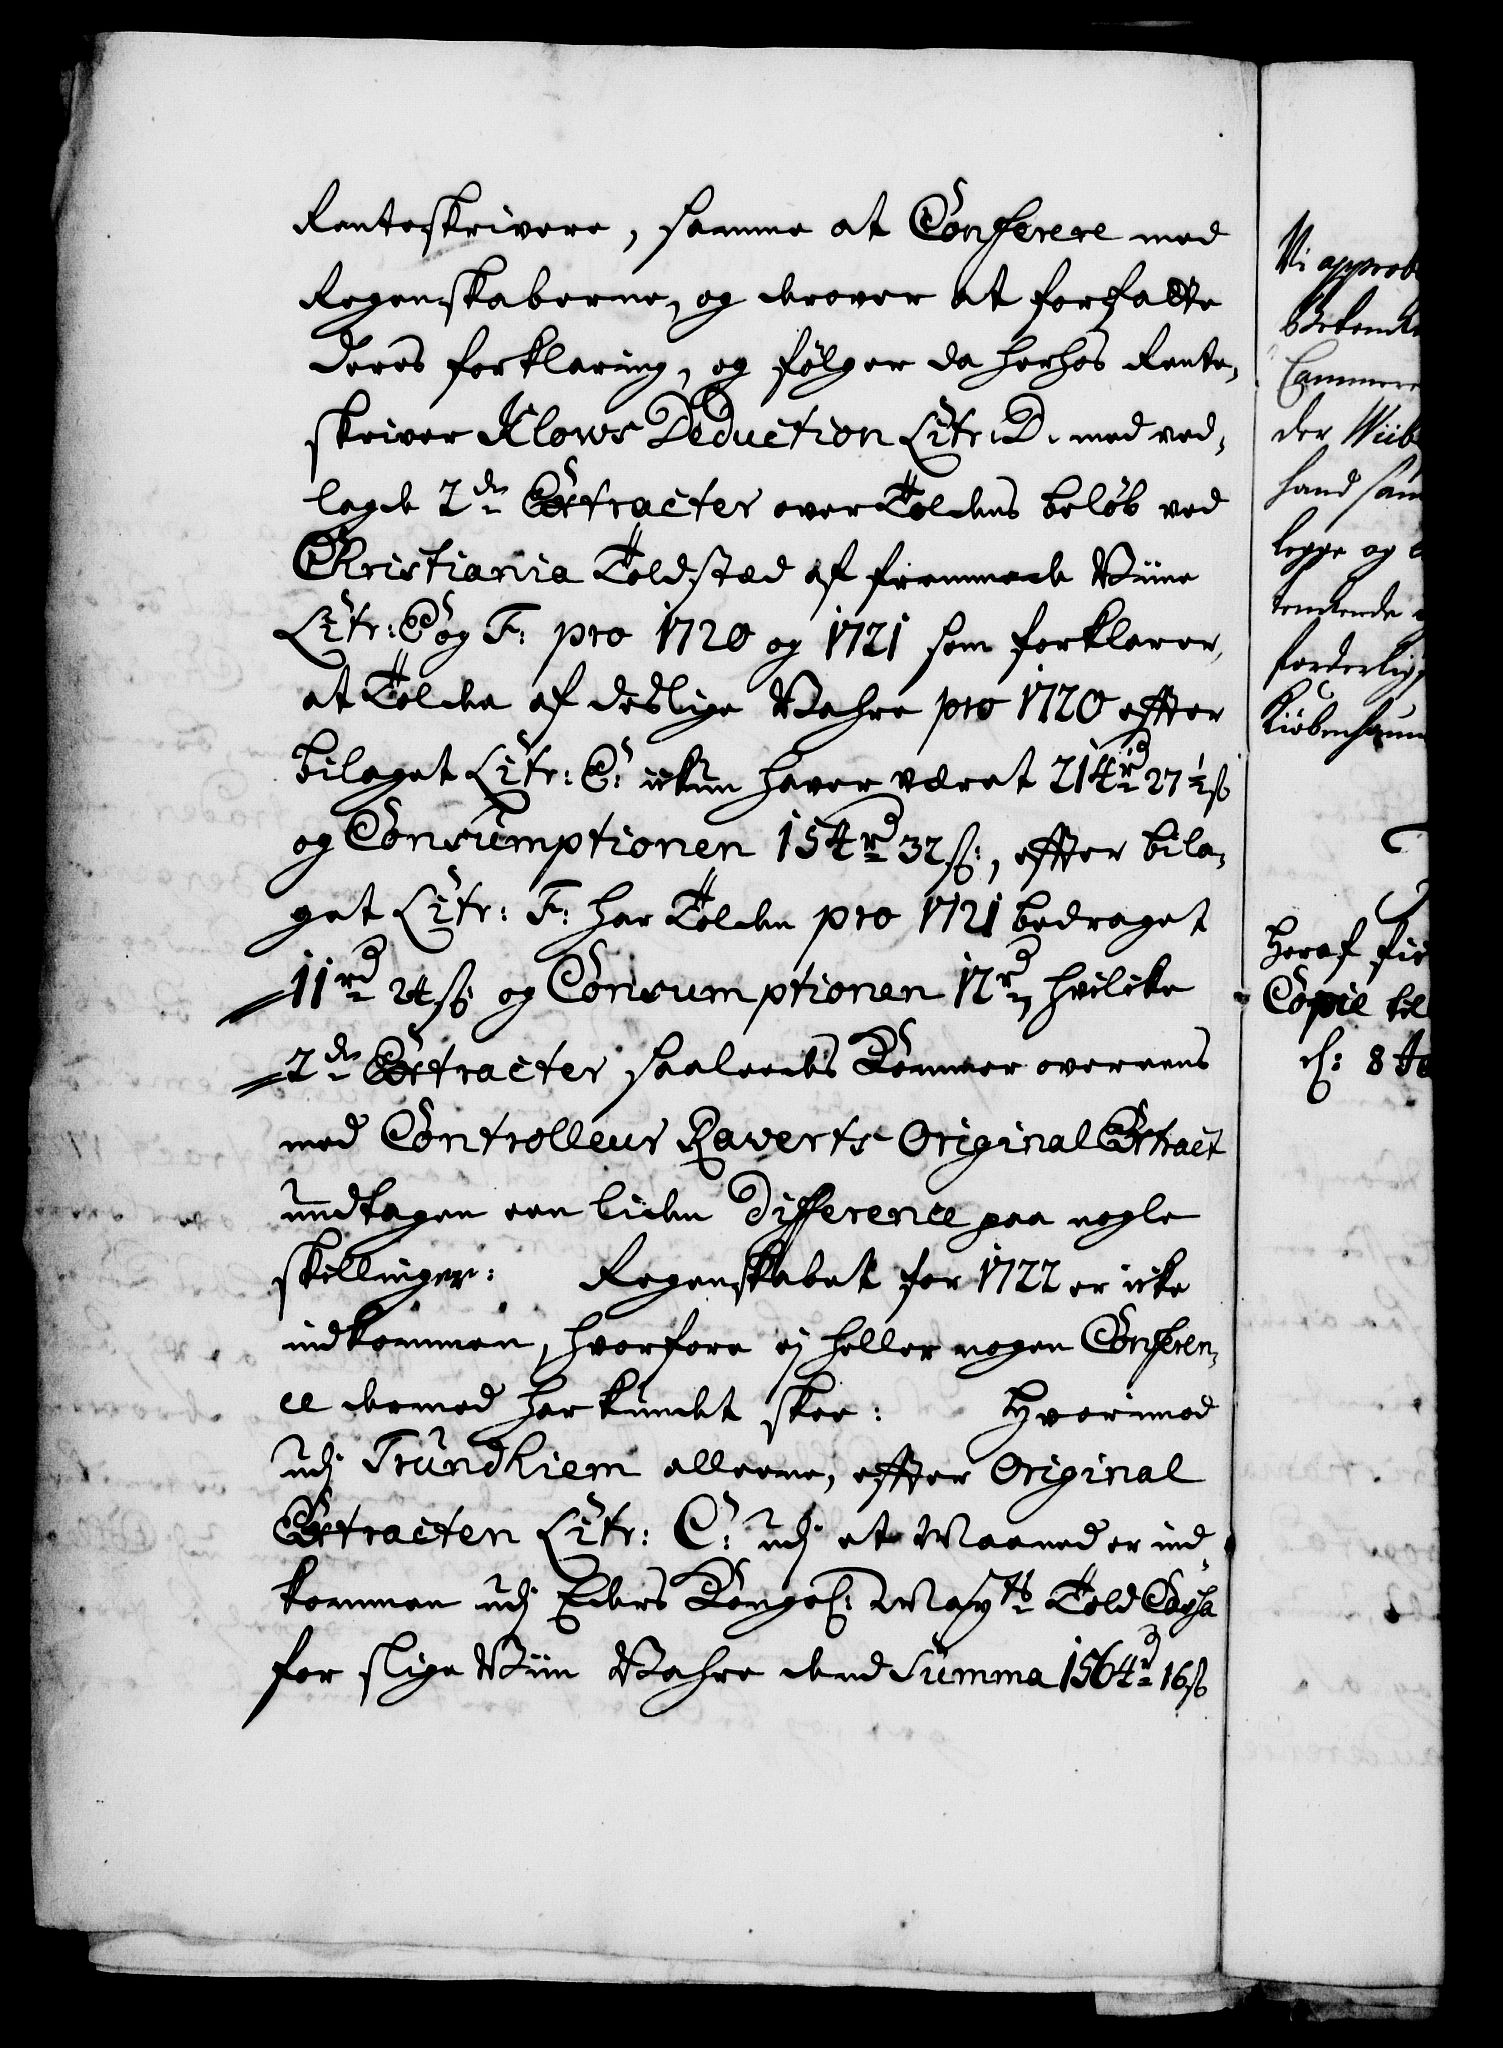 Renteskrivere, samme at Conferere med
Regenskaberne, og derover at forfatte
deres forklaring, og følger da herhos Rente,
skriver Klows Deduction Litr: D. med ved,
lagde 2de Extracter over Toldens beløb ved
Christiania Toldstæd af fremmede Viine
Litr: E og F: pro 1720 og 1721 som forklarer,
at Tolden af deslige Vahre pro 1720 effter
bilaget Litr: E: ickun haver været 214 rd 27½ s
og Consumptionen 154 rd 32 s:, effter bila,
get Litr: F: har Tolden pro 1721 bedraget
11 rd 24 s og Consumptionen 12 rd, hvilcke
2de Extracter saaledes Kommer overeens
med Controlleur Raverts Original Extract
undtagen een liden Difference paa nogle
skillinger: Regenskabet for 1722 er icke
indkommen, hvorfore ej heller nogen Conferen,
ce dermed har kundet skee: Hvorimod
udj Trundhiem alleene, effter Original
Extracten Litr: C: udj et Maaned er ind,
kommen udj Eders Kongel: Mayts Told Cassa
for slige Viin Vahre dend Summa 1564 rd 16 s
Vi approb
Cammer
der Wiib
hand sam
legge og
forderlig
Kiøbenhaun
Heraf
Copie til
d: 8